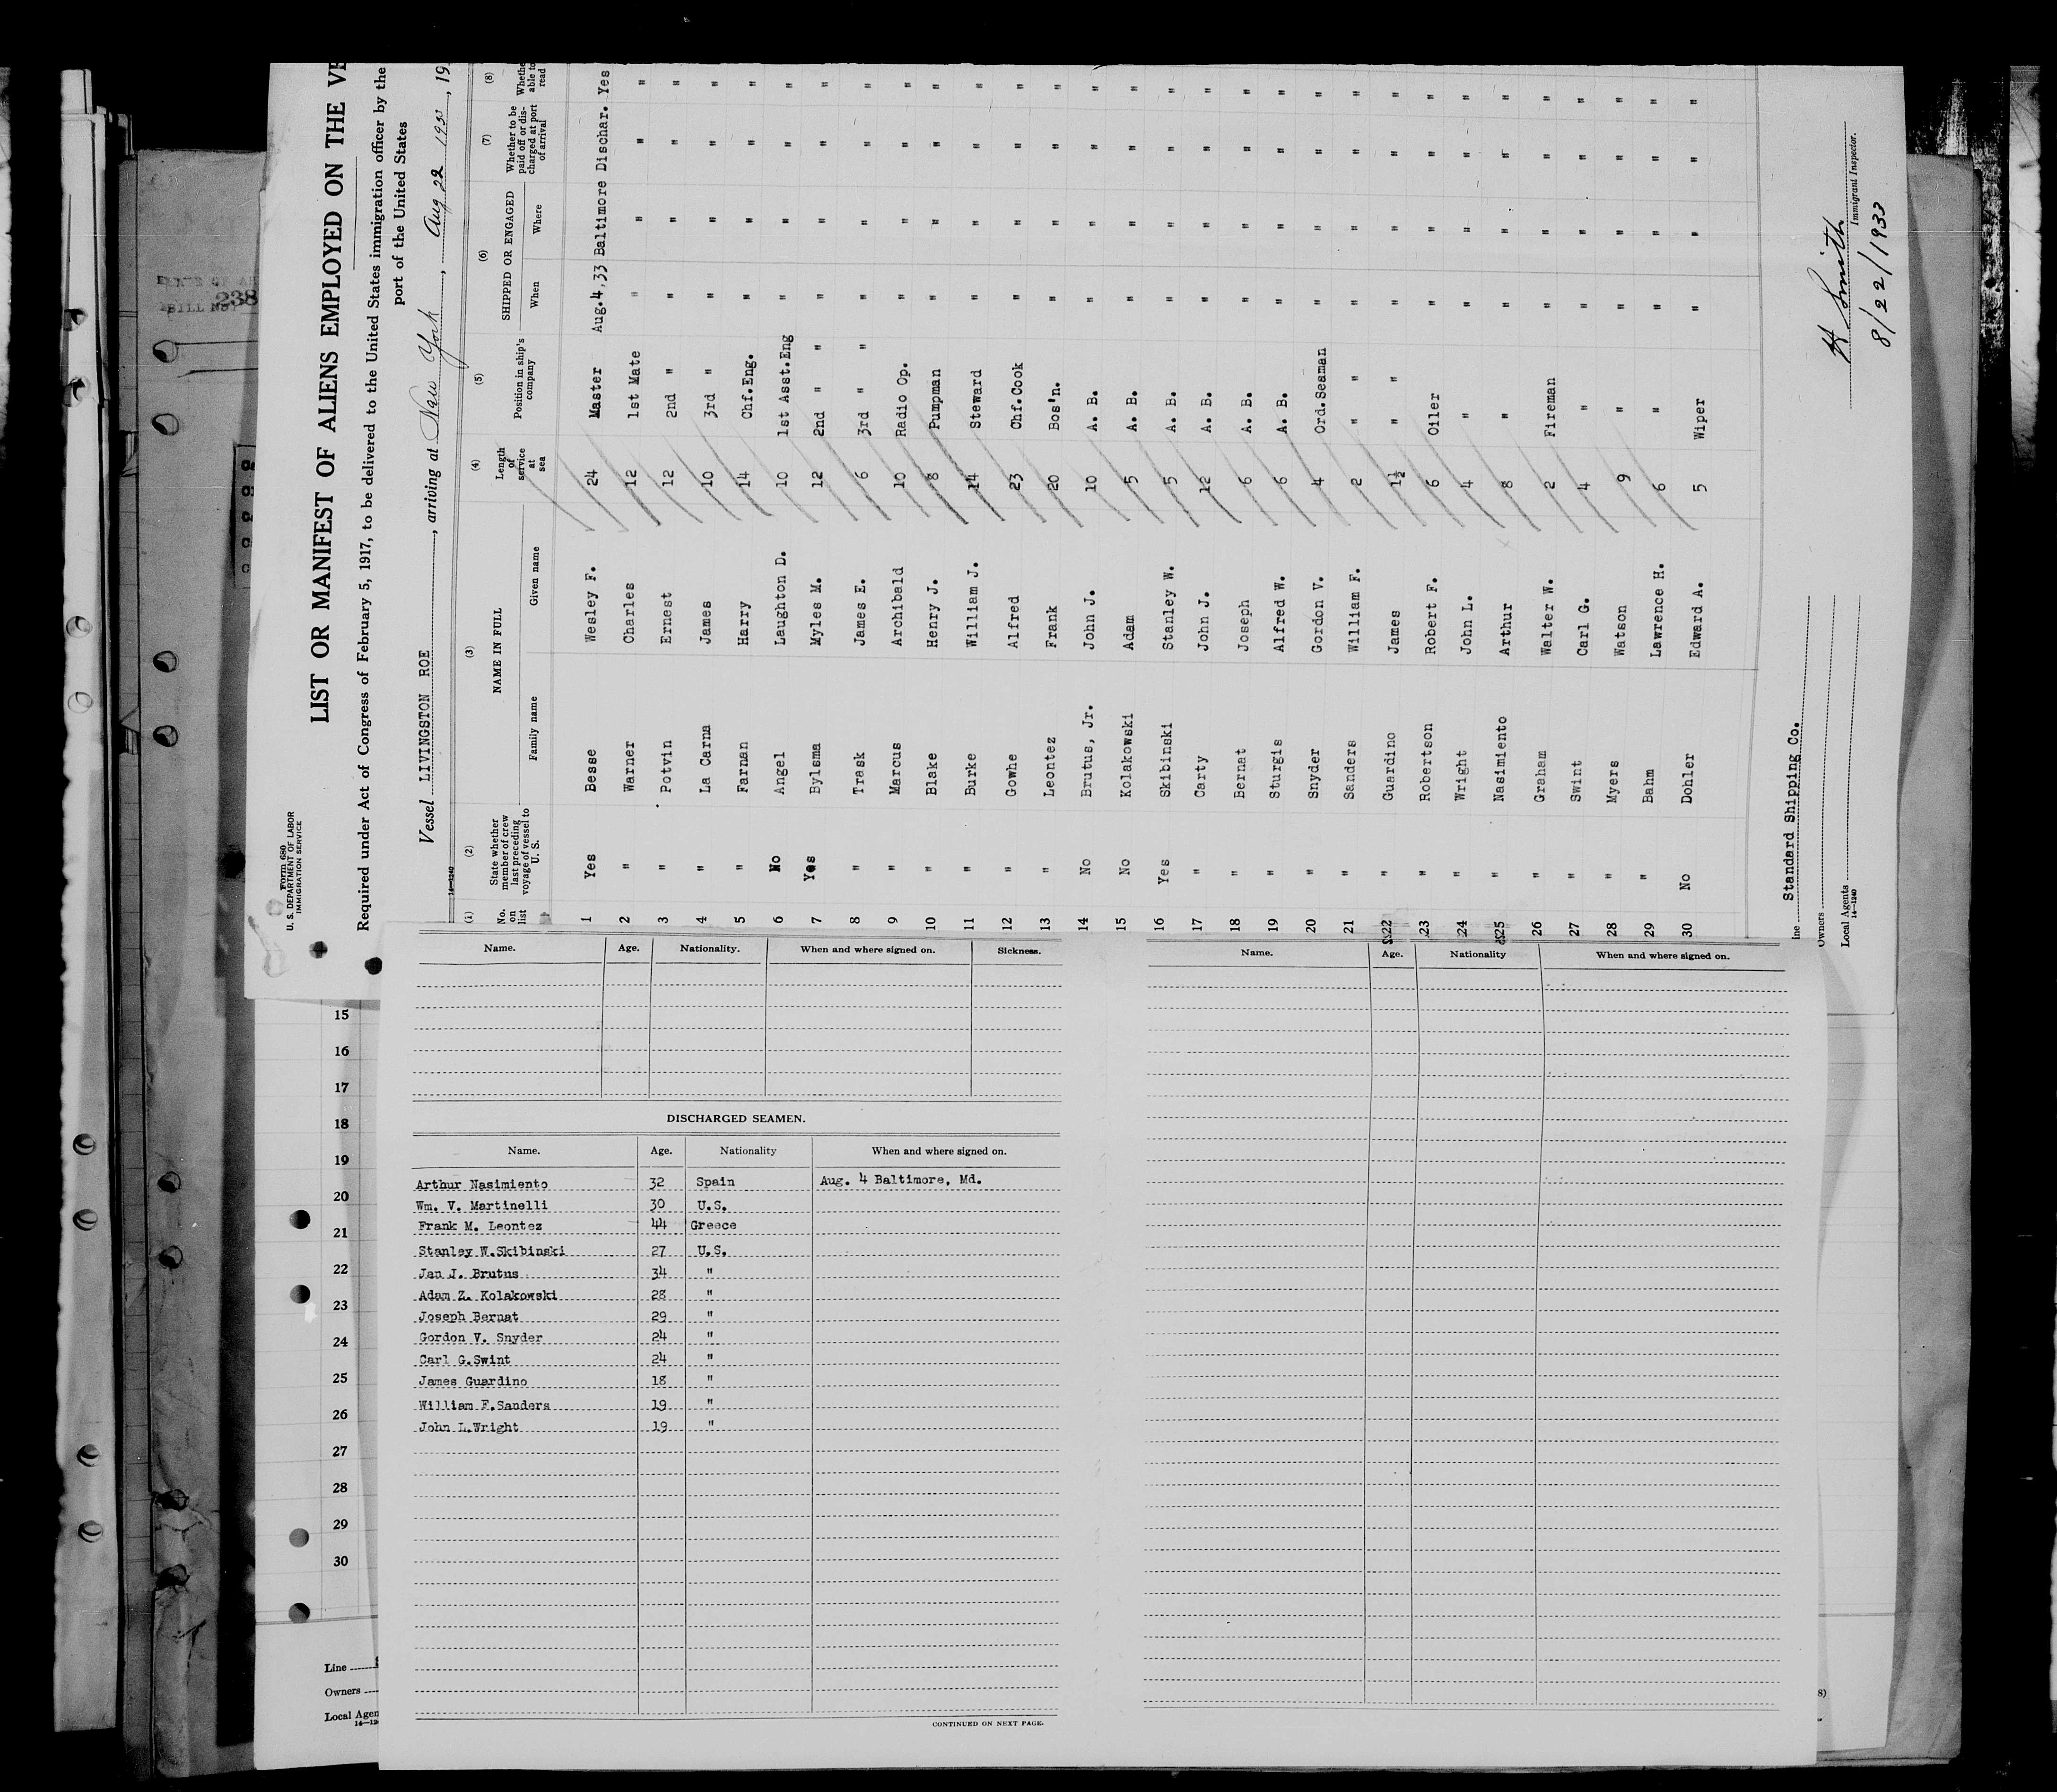 Form 680
U. S. DEPARTMENT OF LABOR
IMMIGRATION SERVICE
LIST OR MANIFEST OF ALIENS EMPLOYED ON THE
Required under Act of Congress of February 5, 1917, to be delivered to the United States immigration officer by the
port of the United States
Vessel LIVINGSTON ROE, arriving at New York, Aug 22 1933, 19
14—1240
(1) (2) (3) (4) (5) (6) (7) (8)
No. on list State whether member of crew last preceding voyage of vessel to U. S. NAME IN FULL Length of service at sea Position in ship's company SHIPPED OR ENGAGED Whether to be paid off or discharged at port of arrival Whether able to read
Family name Given name When Where
1 Yes Besse Wesley F. 24 Master Aug.4,33 Baltimore Dischar. Yes
2 " Warner Charles 12 1st Mate " " " "
3 " Potvin Ernest 12 2nd " " " " "
4 " La Carna James 10 3rd " " " " "
5 " Farnan Harry 14 Chf.Eng. " " " "
6 No Angel Laughton D. 10 1st Asst.Eng " " " "
7 Yes Bylsma Myles M. 12 2nd " " " " " "
8 " Trask James E. 6 3rd " " " " " "
9 " Marcus Archibald 10 Radio Op. " " " "
10 " Blake Henry J. 8 Pumpman " " " "
11 " Burke William J. 14 Steward " " " "
12 " Gowhe Alfred 23 Chf.Cook " " " "
13 " Leontez Frank 20 Bos'n. " " " "
14 No Brutus, Jr. John J. 10 A. B. " " " "
15 No Kolakowski Adam 5 A. B. " " " "
16 Yes Skibinski Stanley W. 5 A. B. " " " "
17 " Carty John J. 12 A. B. " " " "
18 " Bernat Joseph 6 A. B. " " " "
19 " Sturgis Alfred W. 6 A. B. " " " "
20 " Snyder Gordon V. 4 Ord.Seaman " " " "
21 " Sanders William F. 2 " " " " " "
22 " Guardino James 1½ " " " " " "
23 " Robertson Robert F. 6 Oiler " " " "
24 " Wright John L. 4 " " " " "
25 " Nasimiento Arthur 8 " " " " "
26 " Graham Walter W. 2 Fireman " " " "
27 " Swint Carl G. 4 " " " " "
28 " Myers Watson 9 " " " " "
29 " Bahm Lawrence H. 6 " " " " "
30 No Dohler Edward A. 5 Wiper " " " "
ine Standard Shipping Co.
Owners
Local Agents
14—1240
H Smith
Immigrant Inspector.
8/22/1933
238
Name. Age. Nationality. When and where signed on. Sickness.
Name. Age. Nationality When and where signed on.
DISCHARGED SEAMEN.
Name. Age. Nationality When and where signed on.
Arthur Nasimiento 32 Spain Aug. 4 Baltimore, Md.
Wm. V. Martinelli 30 U.S.
Frank M. Leontez 44 Greece
Stanley W.Skibinski 27 U.S.
Jan J. Brutus 34 "
Adam Z. Kolakowski 28 "
Joseph Bernat 29 "
Gordon V. Snyder 24 "
Carl G.Swint 24 "
James Guardino 18 "
William F.Sanders 19 "
John L.Wright 19 "
CONTINUED ON NEXT PAGE.
15
16
17
18
19
20
21
22
23
24
25
26
27
28
29
30
Line
Owners
Local Agen